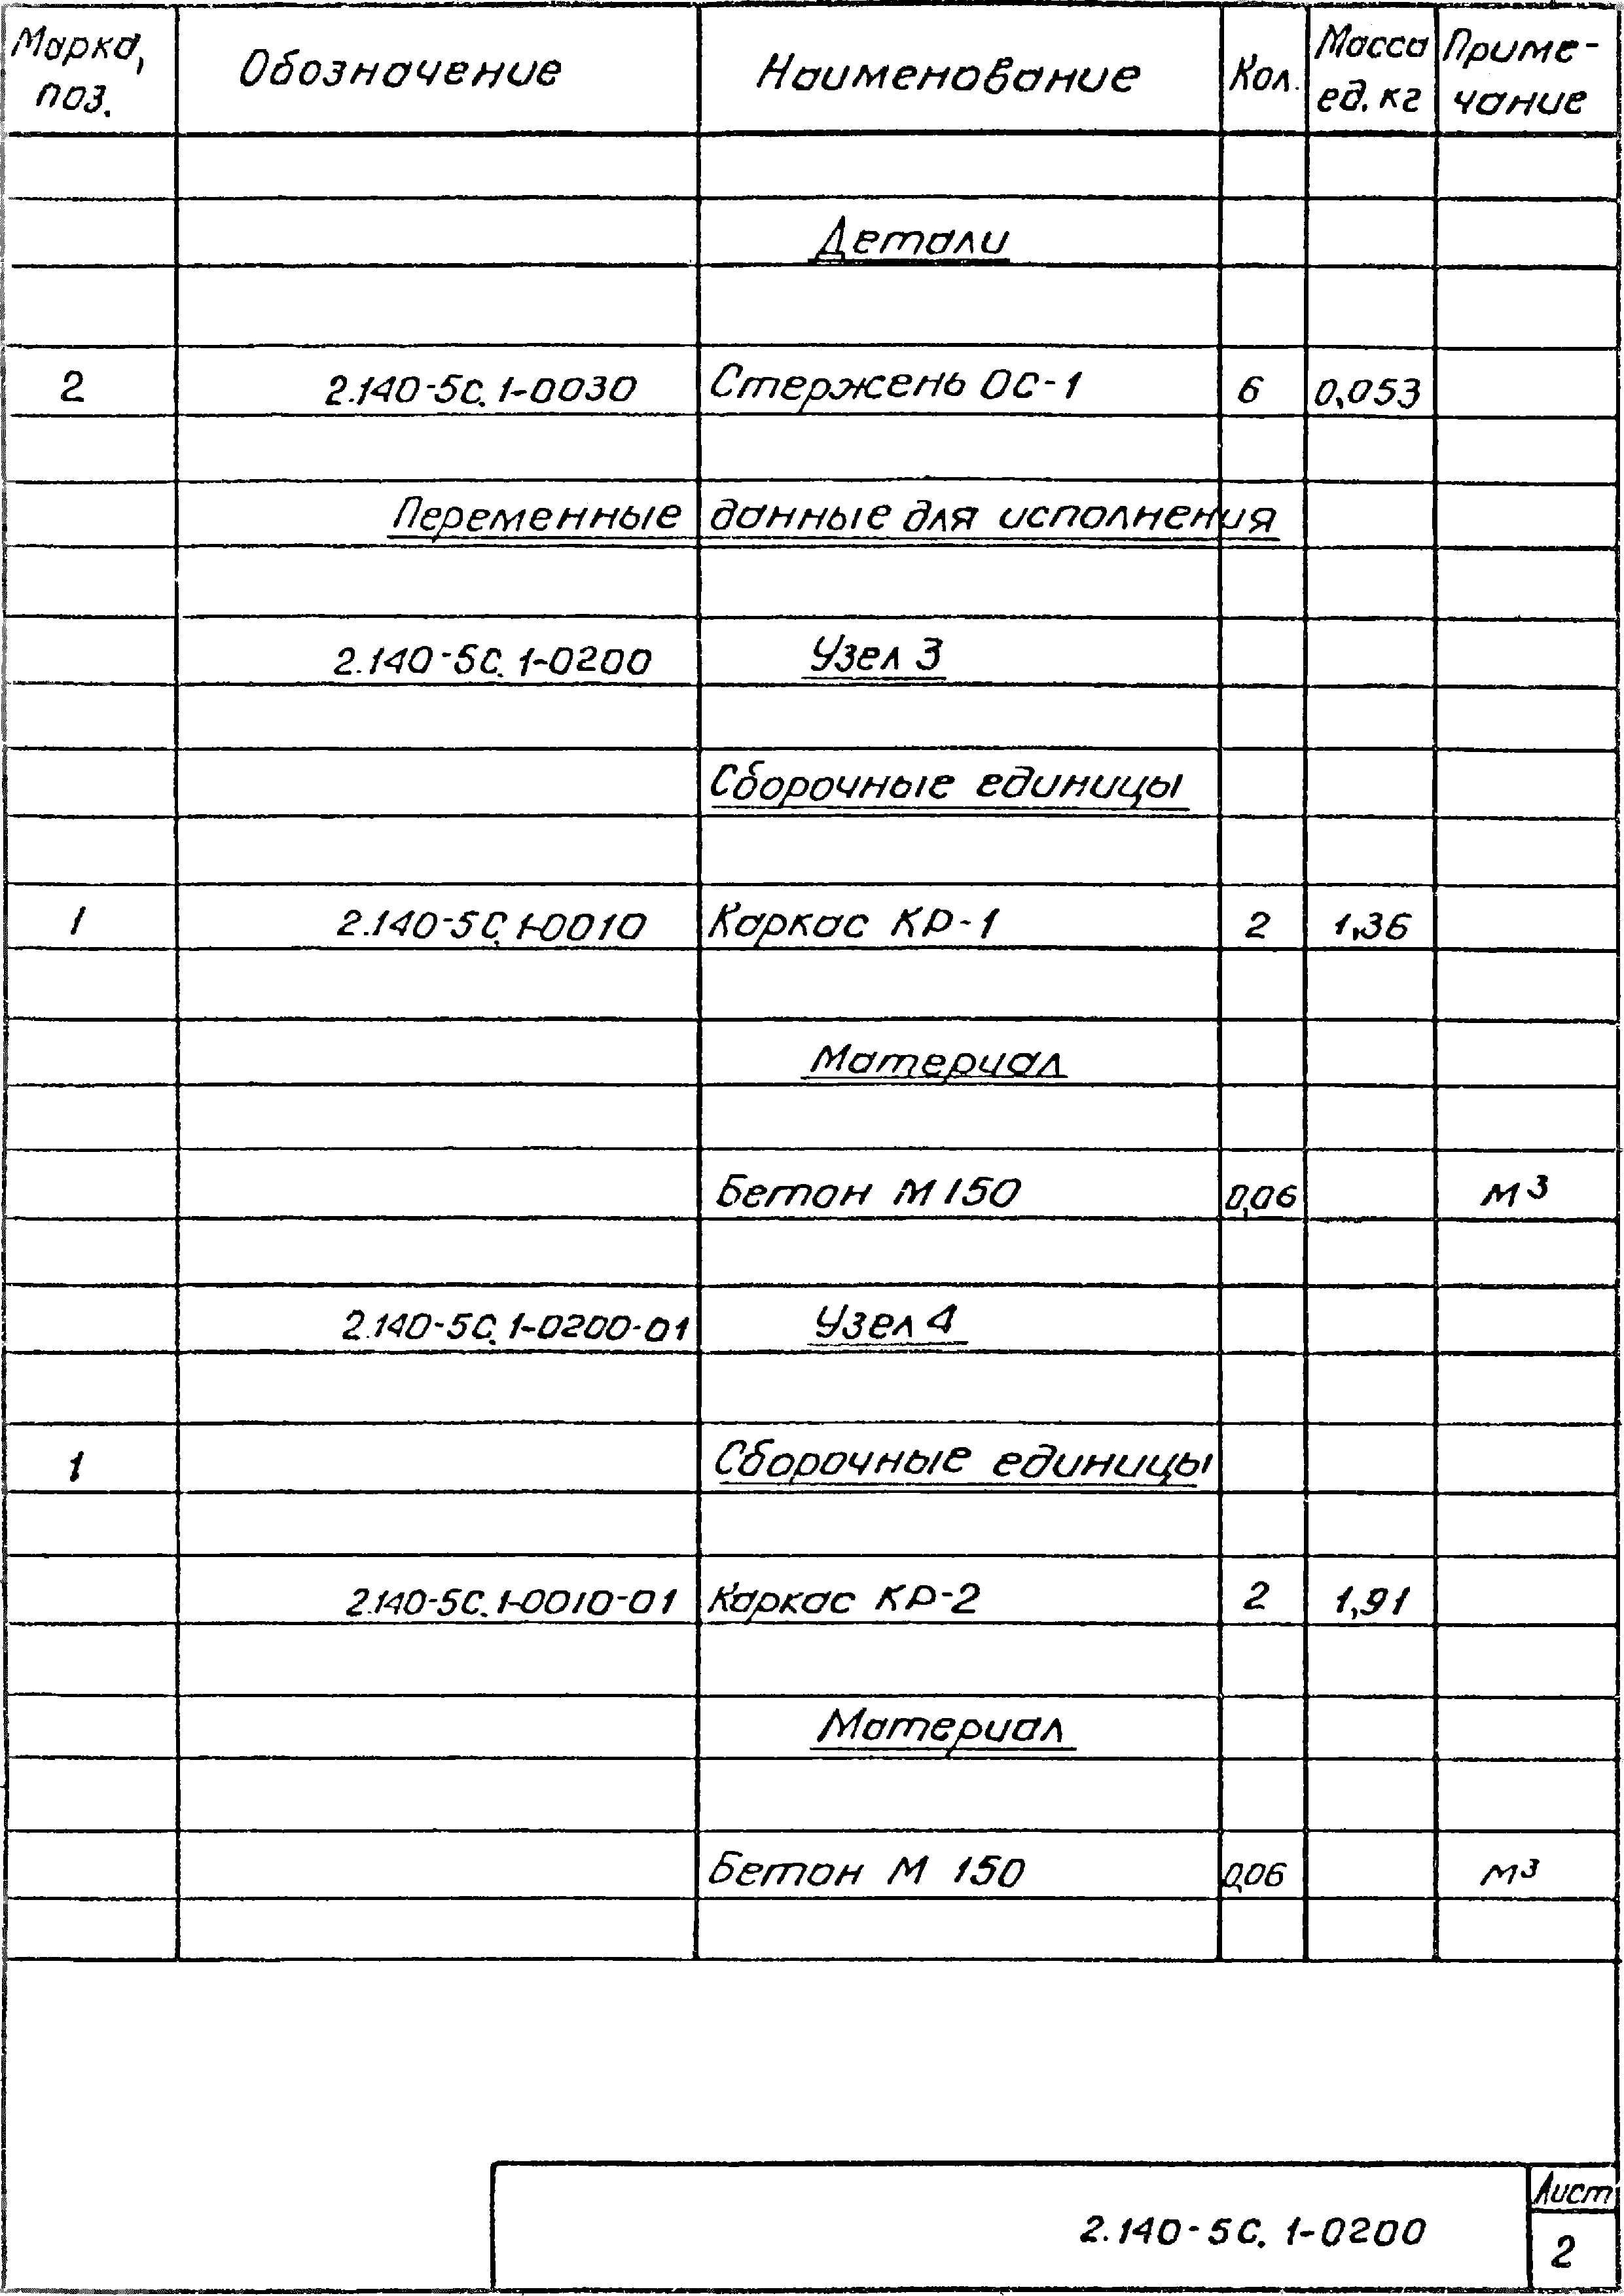 Марка, поз. Обозначение Наименование Кол. Масса ед. кг Приме-чание
Детали
2 2.140-5С.1-0030 Стержень ОС-1 6 0,053
Переменные данные для исполнения
2.140-5С.1-0200 Узел 3
Сборочные единицы
1 2.140-5С.1-0010 Каркас КР-1 2 1,36
Материал
Бетон М150 0,06 м³
2.140-5С.1-0200-01 Узел 4
1 Сборочные единицы
2.140-5С.1-0010-01 Каркас КР-2 2 1,91
Материал
Бетон М 150 0,06 м³
2.140-5С.1-0200
Лист
2